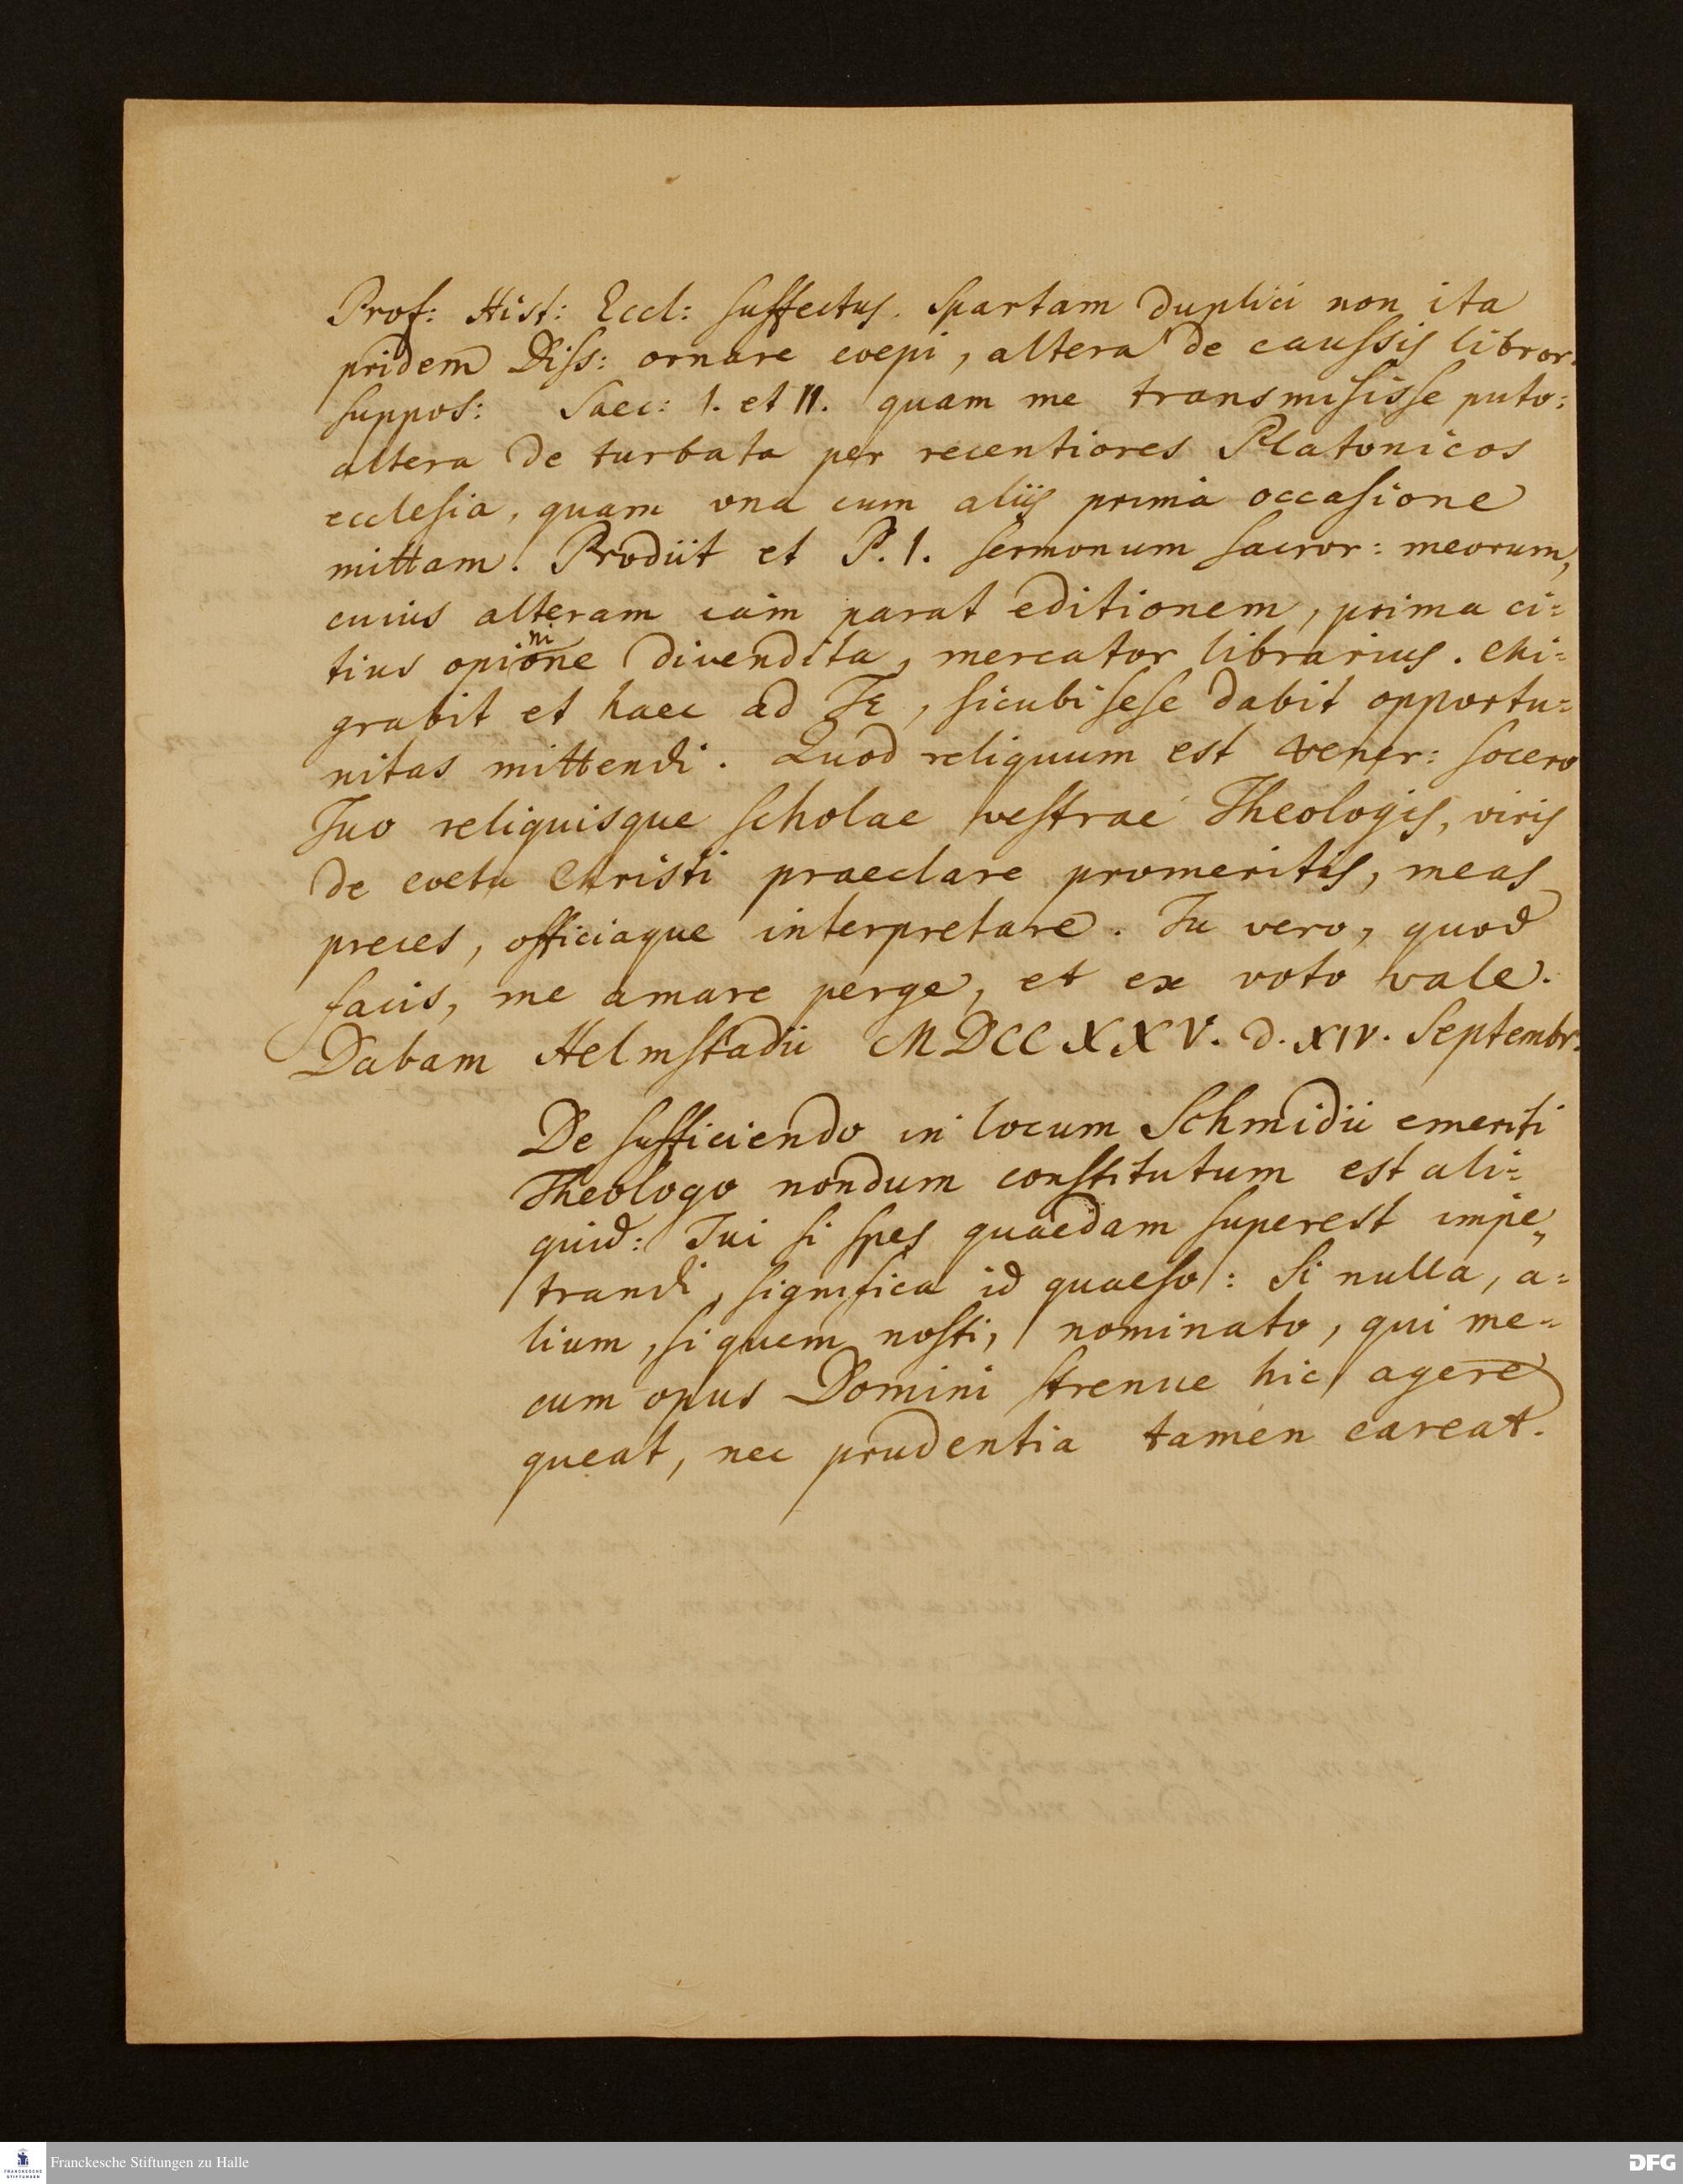 Prof: Hist: Eccl: suffectus. Spartam duplici non ita
pridem Diss: ornare coepi, altera de caussis libror.
suppos: Saec: I. et II. quam me transmisisse puto:
altera de turbata per recentiores Platonicos
ecclesia, quam vna cum aliis prima occasione
mittam. Prodiit et P. I. sermonum sacror: meorum,
cuius alteram iam parat editionem, prima ci=
tius opinione divendita, mercator librarius. Mi=
grabit et haec ad TE, sicubi sese dabit opportu=
nitas mittendi. Quod reliquum est Vener: Socero
Tuo reliquisque scholae vestrae Theologis, viris
de coetu Christi praeclare promeritis, meas
preces, officiaque interpretare. Tu vero, quod
facis, me amare perge, et ex voto vale.
Dabam Helmstadii MDCCXXV. d. XIV. Septembr.
De sufficiendo in locum Schmidii emeriti
Theologo nondum constitutum est ali=
quid: Tui si spes quaedam superest impe=
trandi, significa id quaeso: Si nulla, a=
lium, si quem nosti, nominato, qui me=
cum opus Domini strenue hic agere
queat, nec prudentia tamen careat.
Franckesche Stiftungen zu Halle
FRANCKESCHE
STIFTUNGEN
DFG